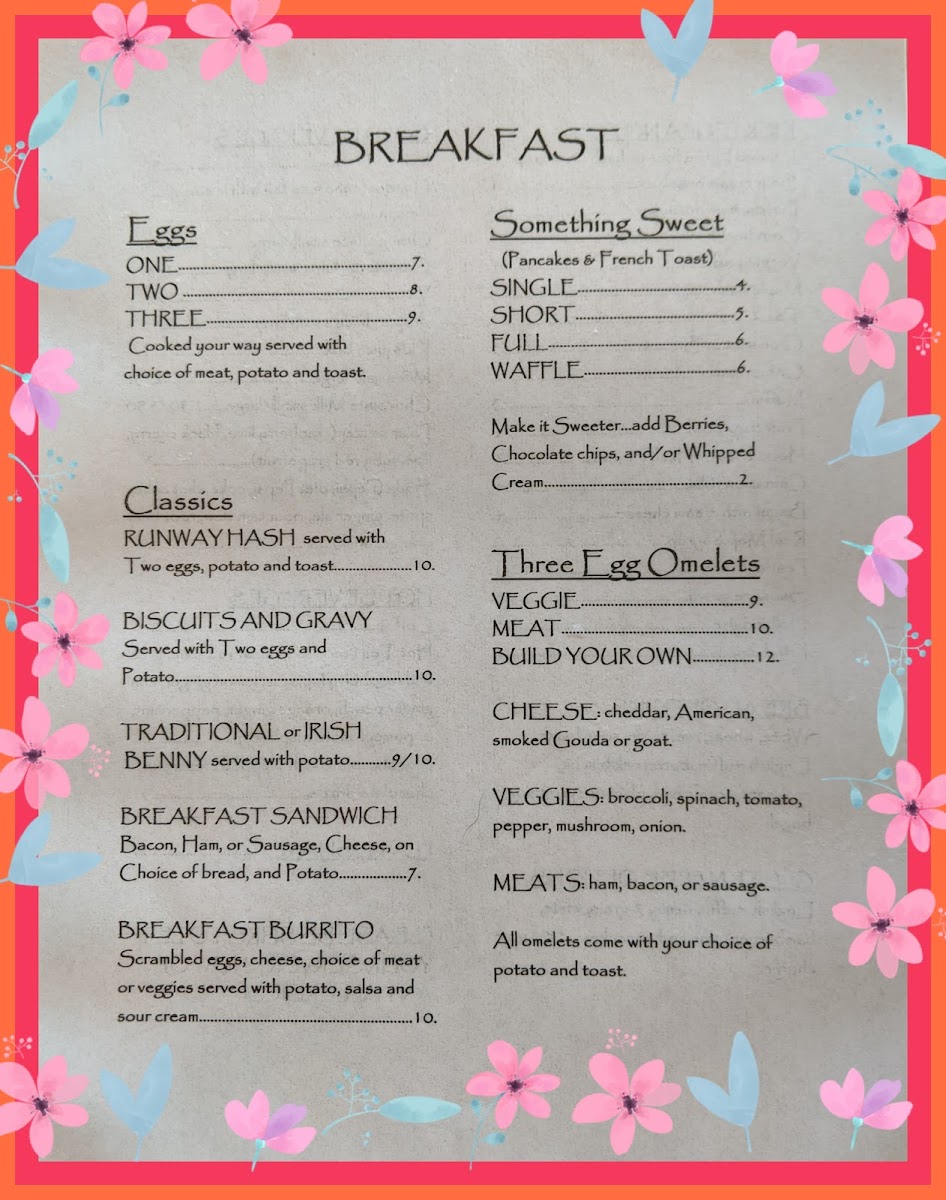 BREAKFAST
Eggs
ONE..........7.
TWO ..........8.
THREE..........9.
Cooked your way served with
choice of meat, potato and toast.
Classics
RUNWAY HASH served with
Two eggs, potato and toast..........10.
BISCUITS AND GRAVY
Served with Two eggs and
Potato..........10.
TRADITIONAL or IRISH
BENNY served with potato..........9/10.
BREAKFAST SANDWICH
Bacon, Ham, or Sausage, Cheese, on
Choice of bread, and Potato..........7.
BREAKFAST BURRITO
Scrambled eggs, cheese, choice of meat
or veggies served with potato, salsa and
sour cream..........10.
Something Sweet
(Pancakes & French Toast)
SINGLE..........4.
SHORT..........5.
FULL..........6.
WAFFLE..........6.
Make it Sweeter...add Berries,
Chocolate chips, and/or Whipped
Cream..........2.
Three Egg Omelets
VEGGIE..........9.
MEAT..........10.
BUILD YOUR OWN..........12.
CHEESE: cheddar, American,
smoked Gouda or goat.
VEGGIES: broccoli, spinach, tomato,
pepper, mushroom, onion.
MEATS: ham, bacon, or sausage.
All omelets come with your choice of
potato and toast.